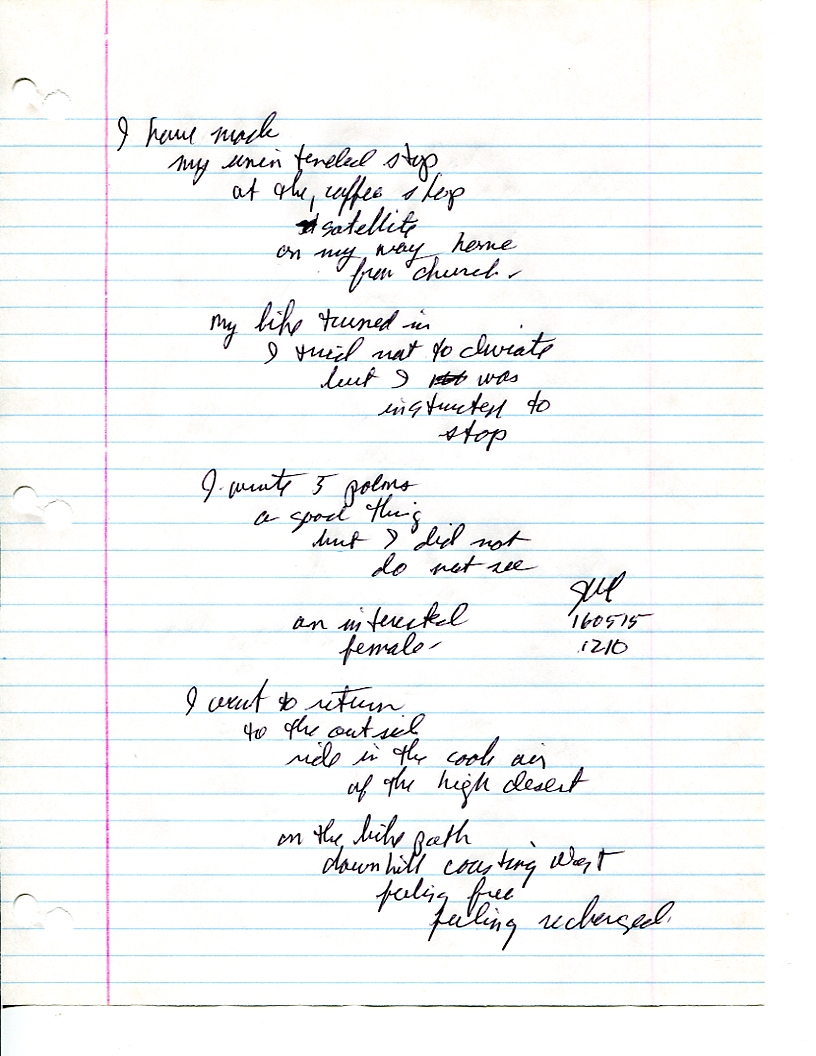 I have made
my unintended stop
at the coffee shop
satellite
on my way home
from church.
my bike turned in
I tried not to deviate
but I was
instructed to
stop
I wrote 3 poems
a good thing
but I did not
do not see
an interested
female.
160515
1210
I want to return
to the outside
ride in the cool air
of the high desert
on the bike path
downhill coasting West
feeling free
feeling recharged.